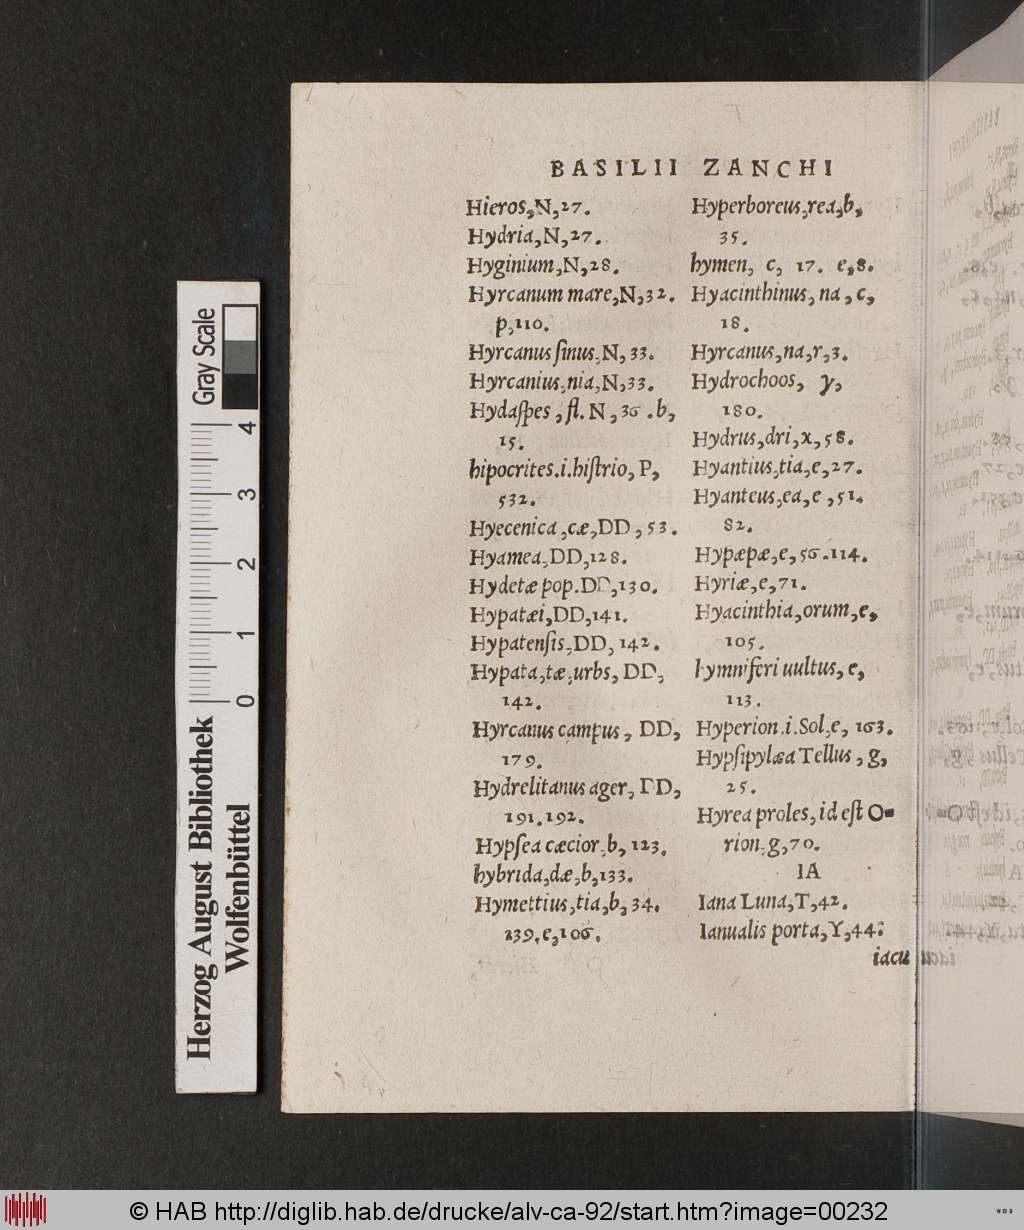 BASILII ZANCHI
Hieros, N, 27.
Hydria, N, 27.
Hyginium, N, 28.
Hyrcanum mare, N, 32.
p, 110.
Hyrcanus ſinus, N, 33.
Hyrcanius, nia, N, 33.
Hydaſpes, fl. N, 36. b,
15.
hipocrites. i. hiſtrio, P,
532.
Hyecenica, cæ, DD, 53.
Hyamea, DD, 128.
Hydetæ pop. DD, 130.
Hypatæi, DD, 141.
Hypatenſis, DD, 142.
Hypata, tæ, urbs, DD,
142.
Hyrcanus campus, DD,
179.
Hydrelitanus ager, DD,
191. 192.
Hypſea cæcior, b, 123.
hybrida, dæ, b, 133.
Hymettius, tia, b, 34.
139. e, 106.
Hyperboreus, rea, b,
35.
hymen, c, 17. e, 8.
Hyacinthinus, na, c,
18.
Hyrcanus, na, r, 3.
Hydrochoos, y,
180.
Hydrus, dri, x, 58.
Hyantius, tia, e, 27.
Hyanteus, ea, e, 51.
82.
Hypæpæ, e, 56. 114.
Hyriæ, e, 71.
Hyacinthia, orum, e,
105.
hymniferi uultus, e,
113.
Hyperion. i. Sol, e, 163.
Hypſipylæa Tellus, g,
25.
Hyrea proles, id eſt O-
rion, g, 70.
IA
Iana Luna, T, 42.
Ianualis porta, Y, 44.
iacu
Gray Scale
4
3
2
1
0
Herzog August Bibliothek
Wolfenbüttel
© HAB http://diglib.hab.de/drucke/alv-ca-92/start.htm?image=00232